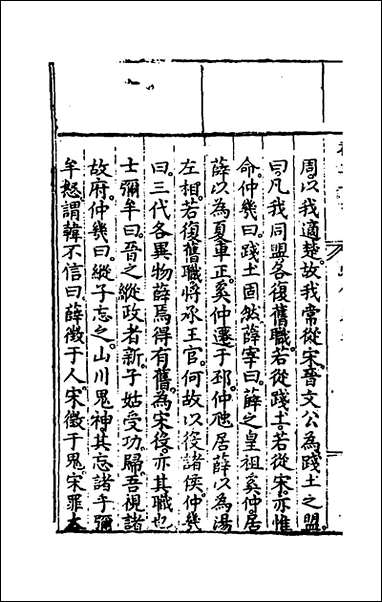 周以我適楚故我常從宋晉文公為踐土之盟
曰凡我同盟各復舊職若從踐土若從宋亦惟
命仲幾曰踐土固然薛宰曰薛之皇祖奚仲居
薛以為夏車正奚仲遷于邳仲虺居薛以為湯
左相若復舊職將承王官何故以役諸侯仲幾
曰三代各異物薛焉得有舊為宋役亦其職也
士彌牟曰晉之縱政者新子姑受功歸吾視諸
故府仲幾曰縱子忘之山川鬼神其忘諸乎彌
牟怒謂韓不信曰薛徵于人宋徵于鬼宋罪大